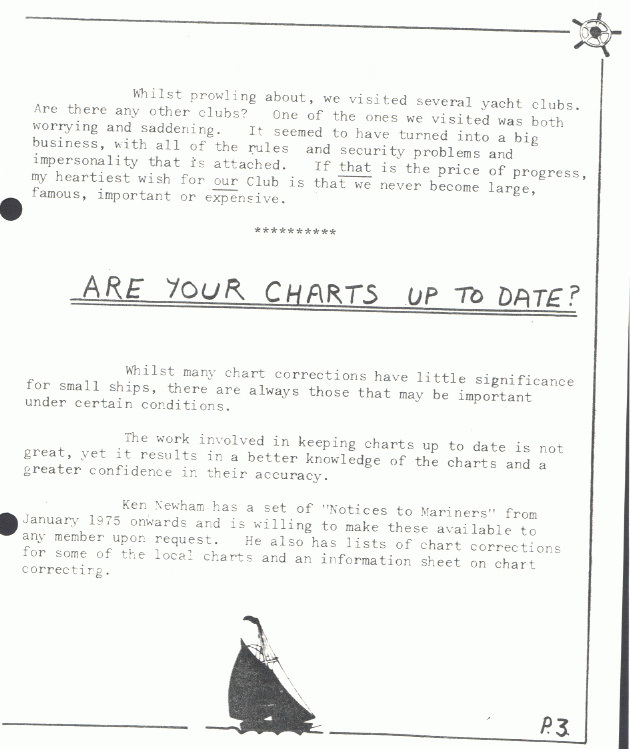 Whilst prowling about, we visited several yacht clubs.
Are there any other clubs? One of the ones we visited was both
worrying and saddening. It seemed to have turned into a big
business, with all of the rules and security problems and
impersonality that is attached. If that is the price of progress,
my heartiest wish for our Club is that we never become large,
famous, important or expensive.
**********
ARE YOUR CHARTS UP TO DATE?
Whilst many chart corrections have little significance
for small ships, there are always those that may be important
under certain conditions.
The work involved in keeping charts up to date is not
great, yet it results in a better knowledge of the charts and a
greater confidence in their accuracy.
Ken Newham has a set of "Notices to Mariners" from
January 1975 onwards and is willing to make these available to
any member upon request. He also has lists of chart corrections
for some of the local charts and an information sheet on chart
correcting.
P.3.